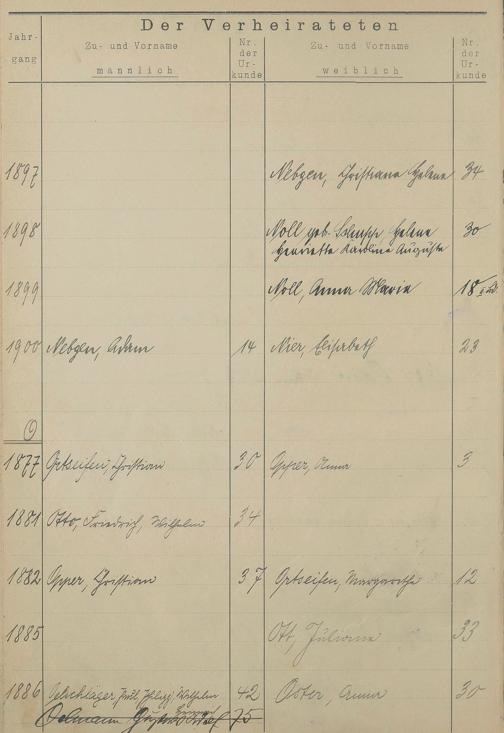 Der Verheirateten
Jahr-
gang
Zu- und Vorname
männlich
Nr.
der
Ur-
kunde
Zu- und Vorname
weiblich
Nr.
der
Ur-
kunde
1897 Nebgen, Christiane Helene 34
1898 Noll geb. Helene 30
Henriette Karoline Auguste
1899 Noll, Anna Maria 18
1900 Nebgen, Adam 14 Nier, Elisabeth 23
O
1877 Ortseifen, Christian 30 Opper, Anna 3
1881 Otto, Friedrich, Wilhelm 34
1882 Opper, Christian 37 Ortseifen, Margarethe 12
1885 Ott, Juliane 33
1886 Oelschläger, Wilhelm 42 Oster, Anna 30
Oelmann Gustav 75